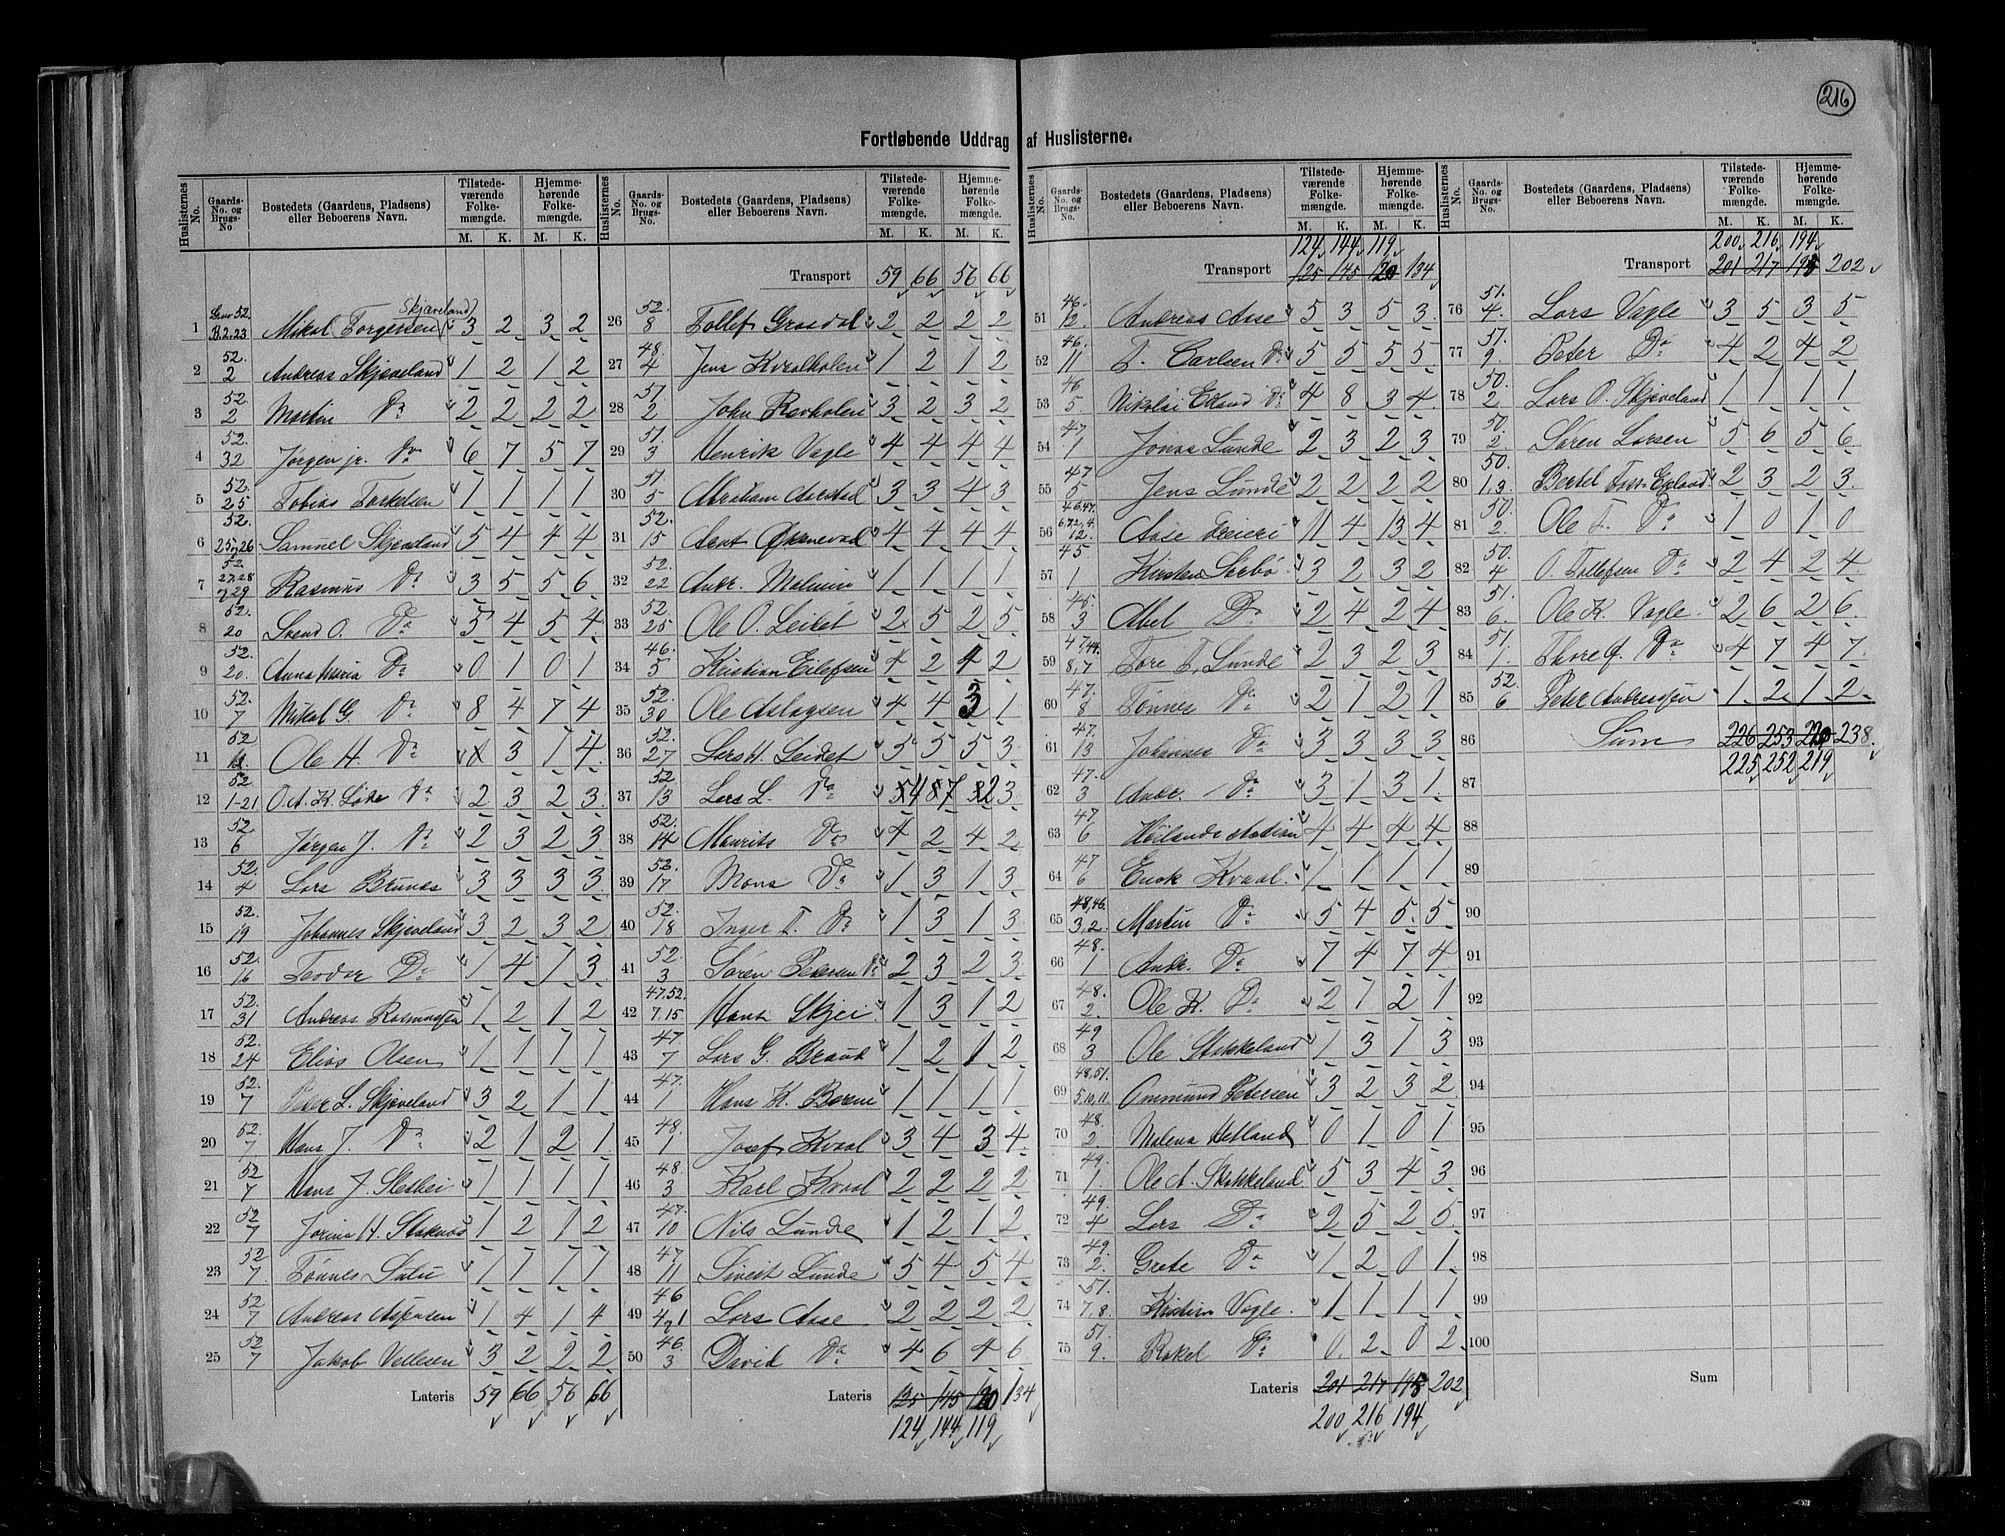 216
Fortløbende Uddrag af Huslisterne.
Huslisternes No. | Gaards-No. og Brugs-No. | Bostedets (Gaardens, Pladsens) eller Beboerens Navn. | Tilstedeværende Folkemængde. M. K. | Hjemmehørende Folkemængde. M. K.
1 Gno 52. B.2.23 Mikal Torgersen (Skjæveland) 3 2 3 2
2 52. 2 Andreas Skjæveland 1 2 1 2
3 52. 2 Martin Do 2 2 2 2
4 52. 32 Jørgen jr. Do 6 7 5 7
5 52. 25 Tobias Torkelsen 1 1 1 1
6 52. 25,26 Samuel Skjæveland 5 4 4 4
7 52. 27,28 29 Rasmus Do 3 5 5 6
8 52. 20 Svend O. Do 5 4 5 4
9 52. 20. Anna Maria Do 0 1 0 1
10 52. 7 Mikal G. Do 8 4 7 4
11 52 Ole H. Do 3 1 4
12 52. 1-21 O. A. K. Do 2 3 2 3
13 52. 6 Jørgen J. Do 2 3 2 3
14 52. 4 Lars Brunes 3 3 3 3
15 52. 19 Johannes Skjæveland 3 2 3 2
16 52. 16 Teodor Do 1 4 1 3
17 52. 31 Andreas Rasmussen 1 2 1 2
18 52. 24 Elias Olsen 1 1 1 1
19 52. 7 L. Skjæveland 3 2 1 1
20 52. 7 Hans J. Do 2 1 2 1
21 52 7 Hans J. 1 1 1 1
22 52/7 Jorina H. 1 2 1 2
23 52 7 Tønnes 1 1 1 1
24 52/7 Andreas 1 4 1 4
25 52/7 Jakob 3 2 2 2
Lateris 59 66 56 66
Transport 59 66 56 66
26 52. 8 Tollef Grasdal 2 2 2 2
27 48. 4 Jens Kvalholen 1 2 1 2
28 51. 2 John Ravholen 3 2 3 2
29 51. 3 Henrik Vagle 4 4 4 4
30 51. 5 Abraham Aarstad 3 3 4 3
31 52. 15 Aent 4 4 4 4
32 52. 22 Andr. Malmin 1 1 1 1
33 52. 25 Ole O. Leitet 2 5 2 5
34 46. 5 Kristian Eilefsen 4 2 4 2
35 52. 30 Ole Aslagsen 4 4 3 1
36 52. 27 Lars H. Leidet 5 5 5 3
37 52 13 Lars L. Do 4 7 2 3
38 52. 14 Maurits Do 4 2 4 2
39 52. 17 Mons Do 1 3 1 3
40 52. 18 Inger T. Do 1 3 1 3
41 52. 3 Søren Pedersen Do 2 3 2 3
42 47,52. 7,15 Hans Skjei 1 3 1 2
43 47. 7 Lars G. Braut 1 2 1 2
44 47. 1 Hans K. Bore 1 1 1 1
45 48. 1 Josef Kvaal 3 4 3 4
46 48. 3 Karl Kvaal 2 2 2 2
47 47. 10 Nils Lunde 1 2 1 2
48 47 11 Sivert Lunde 5 4 5 4
49 46 Lars Aase 2 2 2 2
50 46. 3 David Do 4 6 4 6
Lateris 125 145 120 134
124 144 119
124 144 119
Transport 125 145 120 134
51 46. 12 Andreas Aase 5 3 5 3
52 46. 11 T. Carlsen Do 5 5 5 5
53 46 5 Nikolai Edland Do 4 8 3 4
54 47 1 Jonas Lunde 2 3 2 3
55 47. 5 Jens Lunde 2 2 2 2
56 46,47. Aase Meieri 11 4 13 4
57 45 1 Kirsten Sørbø 3 2 3 2
58 45. 3 Abel Do 2 4 2 4
59 47,44. 8,7 Tore T. Lunde 2 3 2 3
60 47. 8 Tønnes Do 2 1 2 1
61 47. 13 Johannes Do 3 3 3 3
62 47. 3 Andr. Do 3 1 3 1
63 47 6 Høilands station 4 4 4 4
64 47 6 Enok Kvaal 1 1 1 1
65 48,46. 3,2 Martin Do 5 4 5 5
66 48. 1 Andr. Do 7 4 7 4
67 48. 2. Ole K. Do 2 1 2 1
68 49 3 Ole Stokkeland 1 3 1 3
69 48,51. 5,10,11. Ommund Petersen 3 2 3 2
70 48. 2. Malena Hetland 0 1 0 1
71 49. 1. Ole A. Stokkeland 5 3 4 3
72 49. 4 Lars Do 2 5 2 5
73 49. 2. Grete Do 1 2 0 1
74 51. 7,8. Kristian Vagle 1 1 1 1
75 51. 9. Rakel Do 0 2 0 2
Lateris 201 217 195 202
200 216 194
200 216 194
Transport 201 217 195 202
76 51. 4. Lars Vagle 3 5 3 5
77 51. 9. Peter Do 4 2 4 2
78 50. 2 Lars O. Skjæveland 1 1 1 1
79 50. 2 Søren Larsen 5 6 5 6
80 50. 1.3. Bertel Espeland 2 3 2 3
81 50. 2 Ole T. Do 1 0 1 0
82 50. 4 O. Tollefsen Do 2 4 2 4
83 51. 6 Ole K. Vagle 2 6 2 6
84 51. 1. Thore G. Do 4 7 4 7
85 52. 6 Peter Andreassen 1 2 1 2
86 Sum 226 253 220 238
225 252 219
87
88
89
90
91
92
93
94
95
96
97
98
99
100
Sum